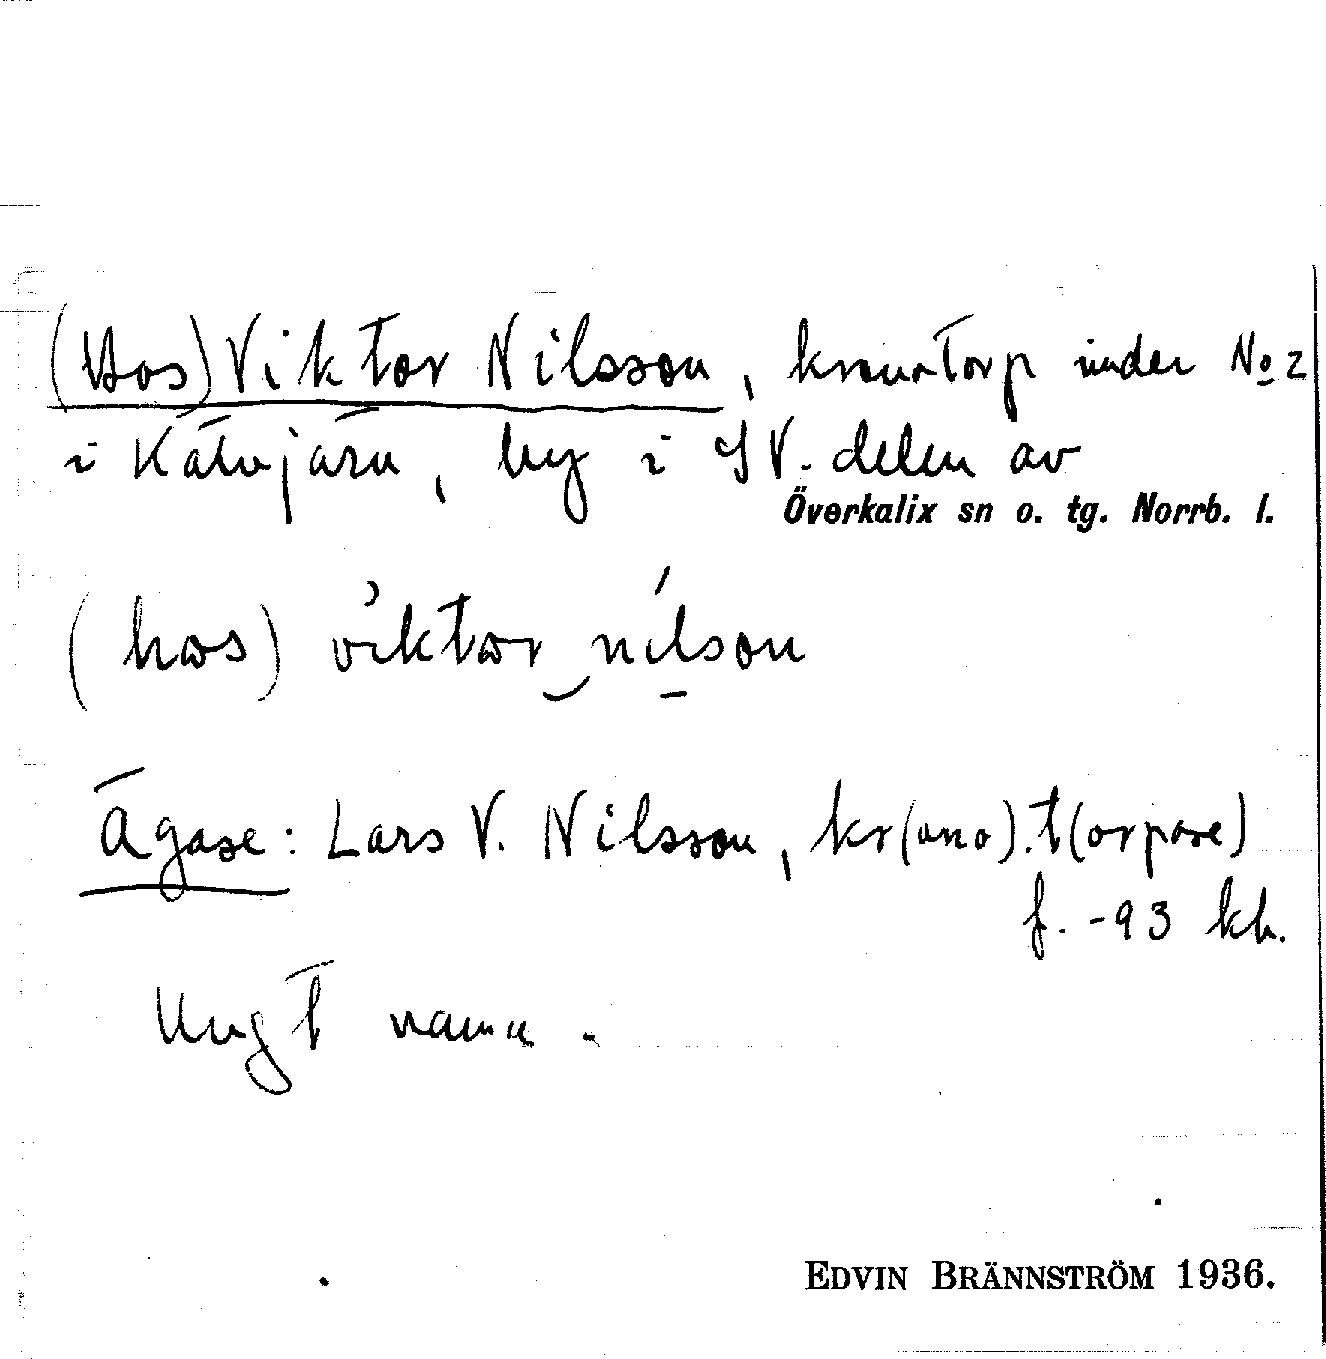 (Hos) Viktor Nilsson, kronotorp under No 2
i Kätvjärn, by i SV. delen av
Överkalix sn o. tg. Norrb. l.
(hos) viktor nilson
Ägare: Lars V. Nilsson, kr(ono).t(orpare)
f. -93 kh.
Ungt namn.
EDVIN BRÄNNSTRÖM 1936.